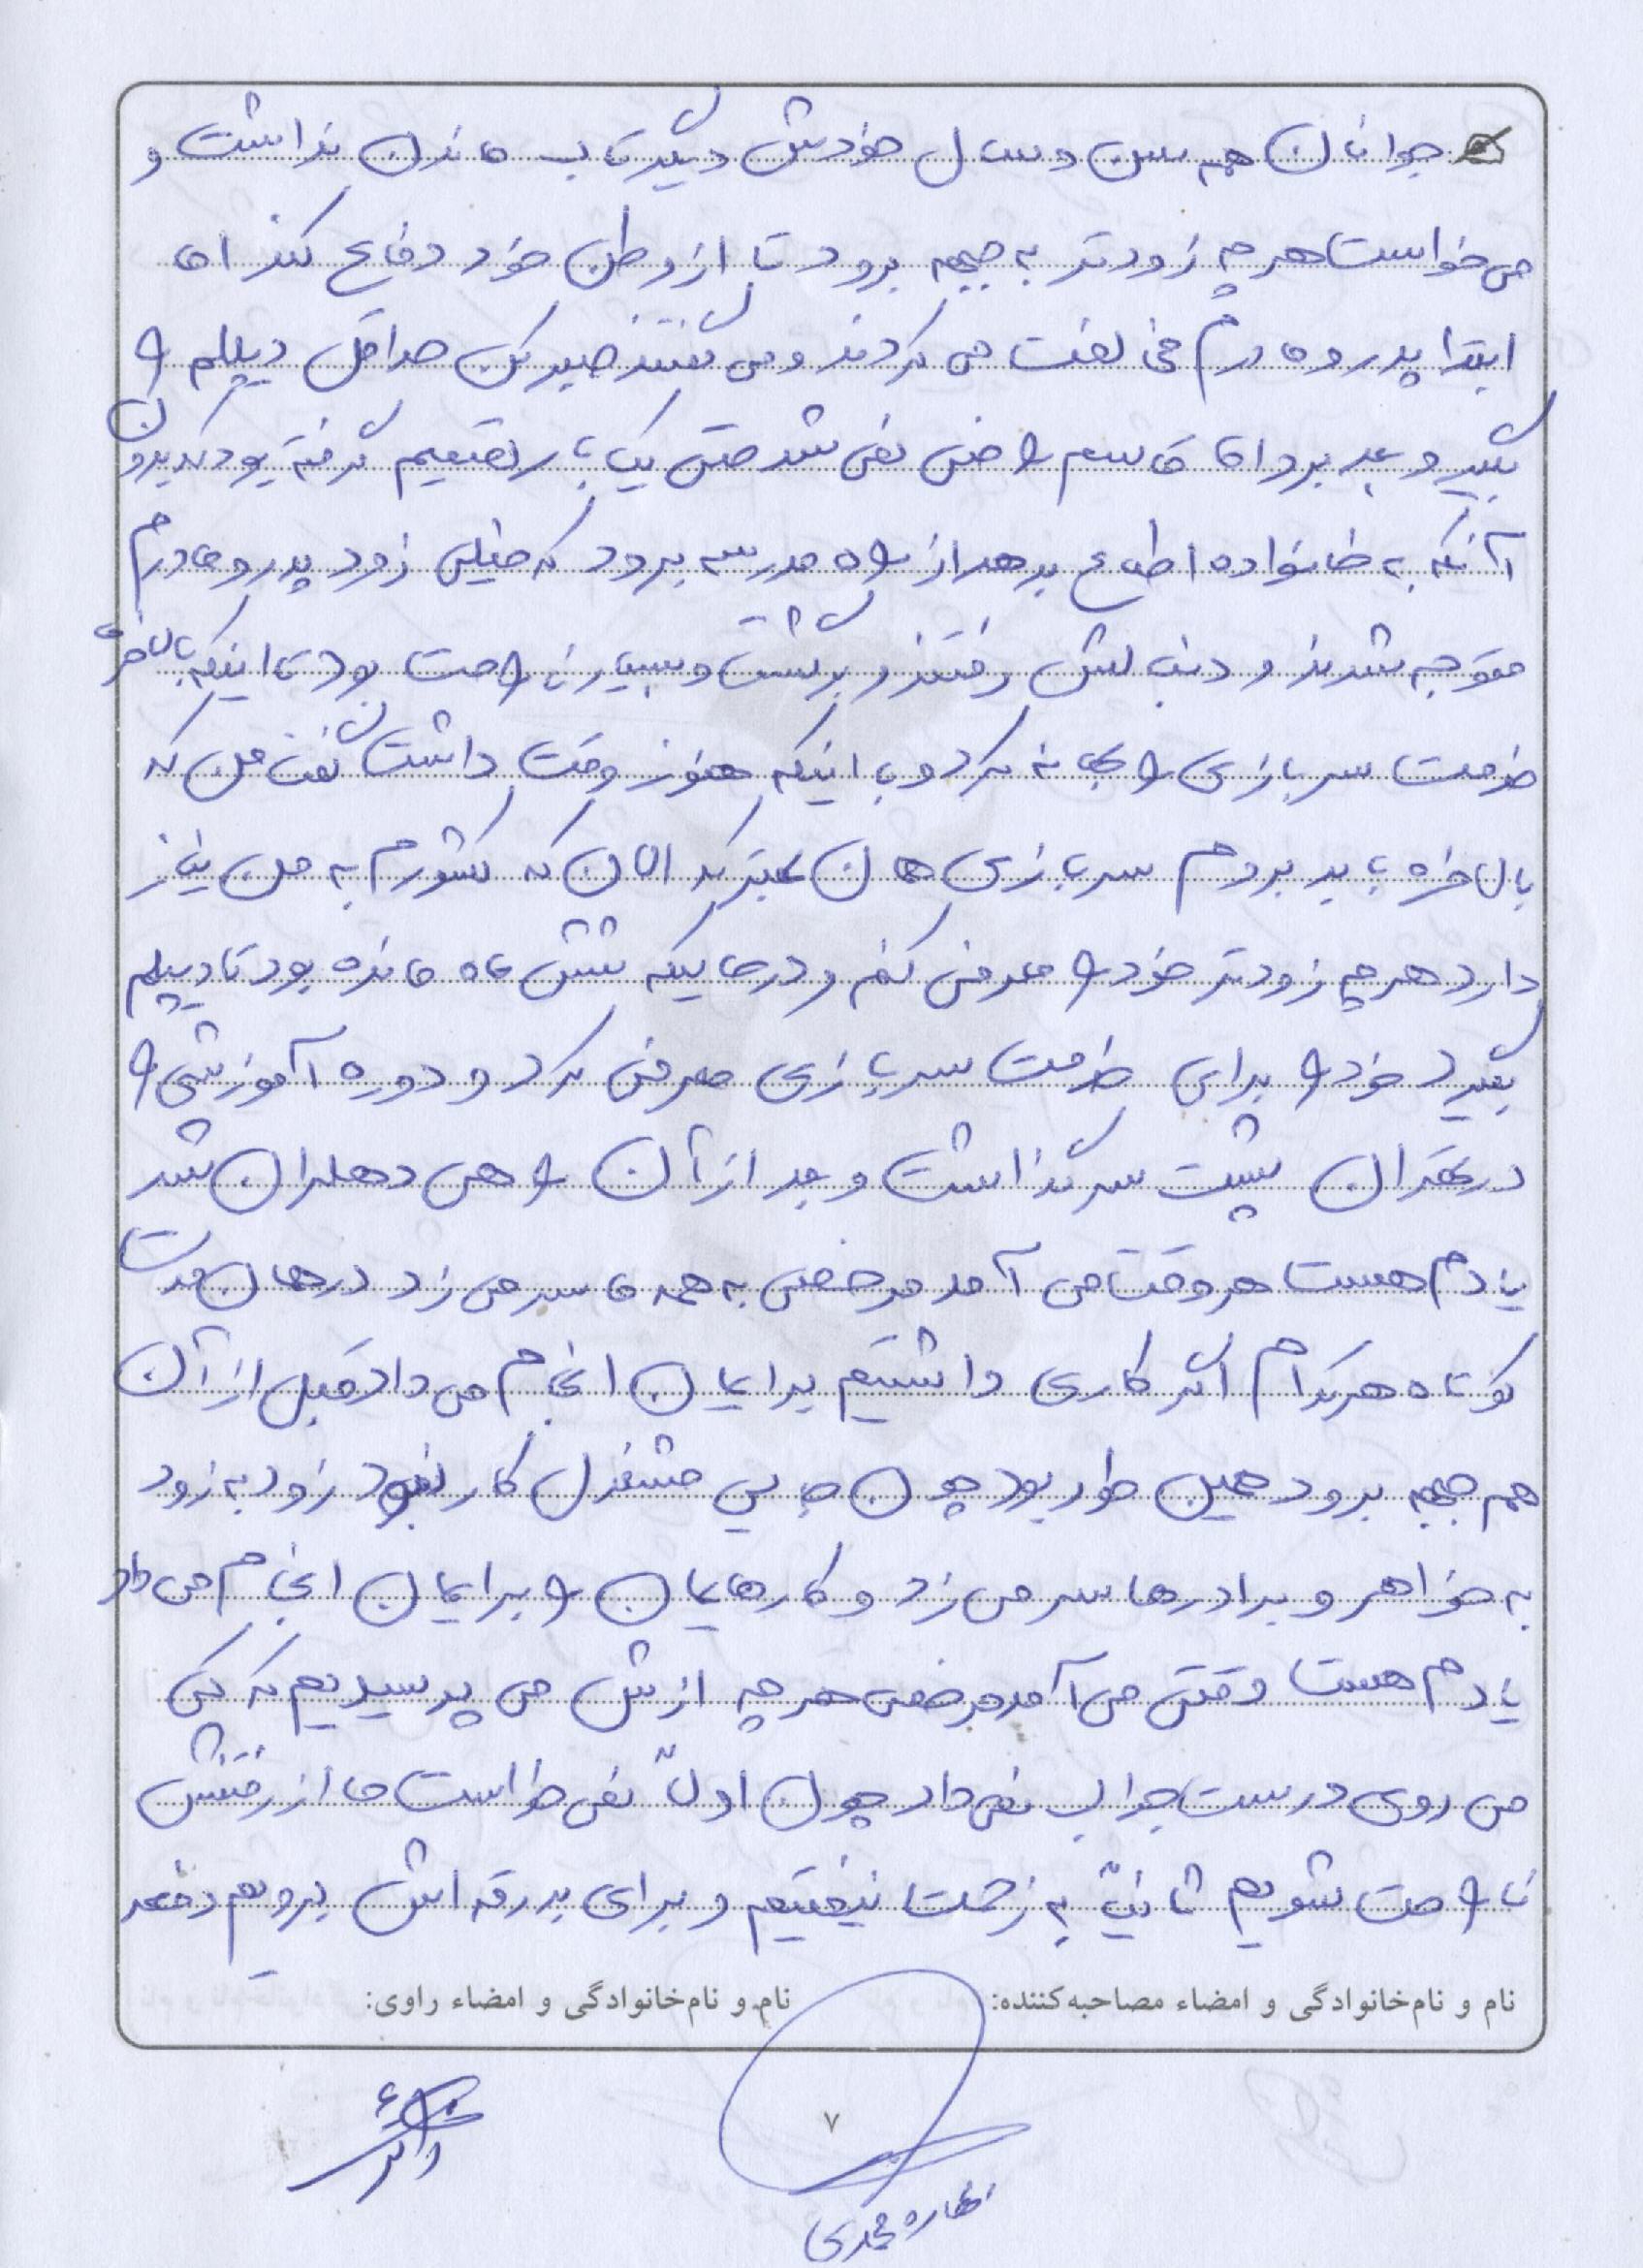 جوانان هم سن و سال خودش دیگر تاب ماندن نداشت و
می خواست هر چه زودتر به جبهه برود تا از وطن خود دفاع کند اما
ابتدا پدر و مادرم مخالفت می کردند و می گفتند صبر کن حداقل دیپلم را
بگیر و بعد برو اما قاسم راضی نمی شد حتی یک بار تصمیم گرفته بود که بدون
آنکه به خانواده اطلاع بدهد از راه مدرسه برود که خیلی زود پدر و مادرم
متوجه شدند و دنبالش رفتند و برگشت و بسیار ناراحت بود تا اینکه بالاخره
خدمت سربازی را بهانه کرد و با اینکه هنوز وقت داشت گفت من که
بالاخره باید بروم سربازی همان بهتر که الان که کشورم به من نیاز
دارد هر چه زودتر خود را معرفی کنم و در حالیکه شش ماه مانده بود تا دیپلم
بگیرد خود را برای خدمت سربازی معرفی کرد و دوره آموزشی را
در تهران پشت سر گذاشت و بعد از آن راهی دهلران شد
یادم هست هر وقت می آمد مرخصی به همه ما سر می زد در همان مدت
کوتاه هر کدام اگر کاری داشتیم برایمان انجام می داد قبل از آن
هم جبهه برود همین طور بود چون جایی مشغول کار نبود زود به زود
به خواهر و برادرها سر می زد و کارهایمان را برایمان انجام می داد
یادم هست وقتی می آمد مرخصی هر چه ازش می پرسیدیم که کی
می روی درست جواب نمی داد چون اولاً نمی خواست ما از رفتنش
ناراحت شویم ثانیاً به زحمت نیفتیم و برای بدرقه اش برویم دفعه
نام و نام‌خانوادگی و امضاء مصاحبه‌کننده: نام و نام‌خانوادگی و امضاء راوی:
۷
محمدی